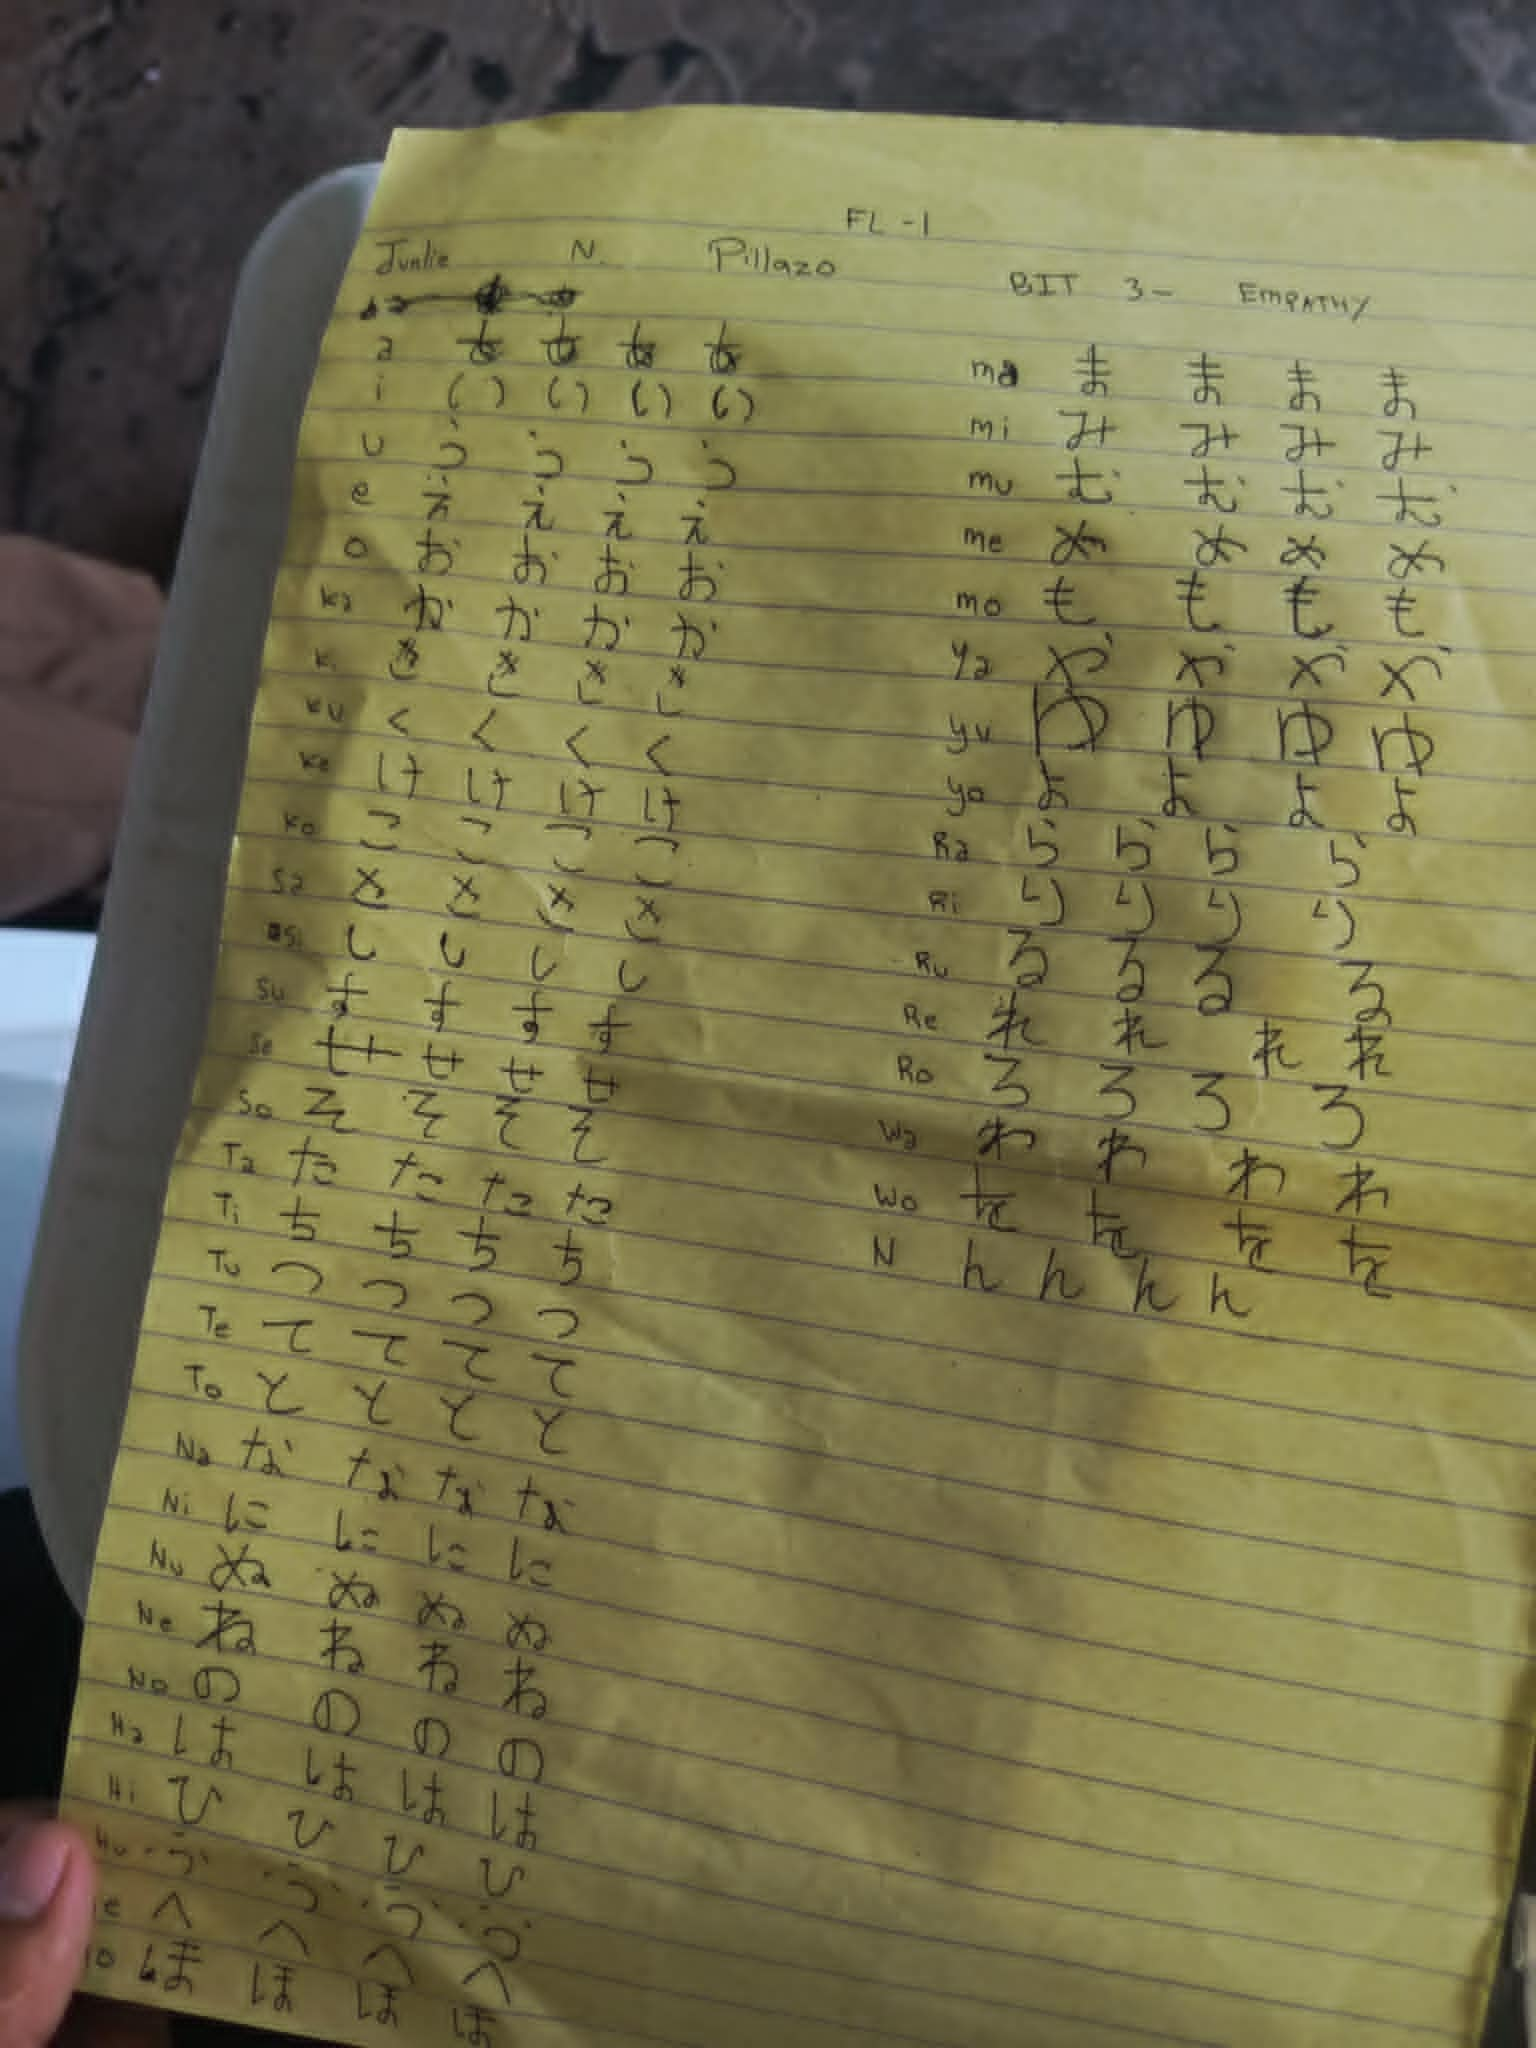 FL -1
Junlie N. Pillazo BIT 3- EMPATHY
a あ あ あ あ
i い い い い
u う う う う
e え え え え
o お お お お
ka か か か か
ki き き き き
ku く く く く
ke け け け け
ko こ こ こ こ
sa さ さ さ さ
si し し し し
su す す す す
se せ せ せ せ
so そ そ そ そ
Ta た た た た
Ti ち ち ち ち
Tu つ つ つ つ
Te て て て て
To と と と と
Na な な な な
Ni に に に に
Nu ぬ ぬ ぬ ぬ
Ne ね ね ね ね
No の の の の
Ha は は は は
Hi ひ ひ ひ ひ
Hu ふ ふ ふ ふ
e へ へ へ へ
o ほ ほ ほ ほ
ma ま ま ま ま
mi み み み み
mu む む む む
me め め め め
mo も も も も
ya や や や や
yu ゆ ゆ ゆ ゆ
yo よ よ よ よ
Ra ら ら ら ら
Ri り り り り
Ru る る る る
Re れ れ れ れ
Ro ろ ろ ろ ろ
Wa わ わ わ わ
Wo を を を を
N ん ん ん ん